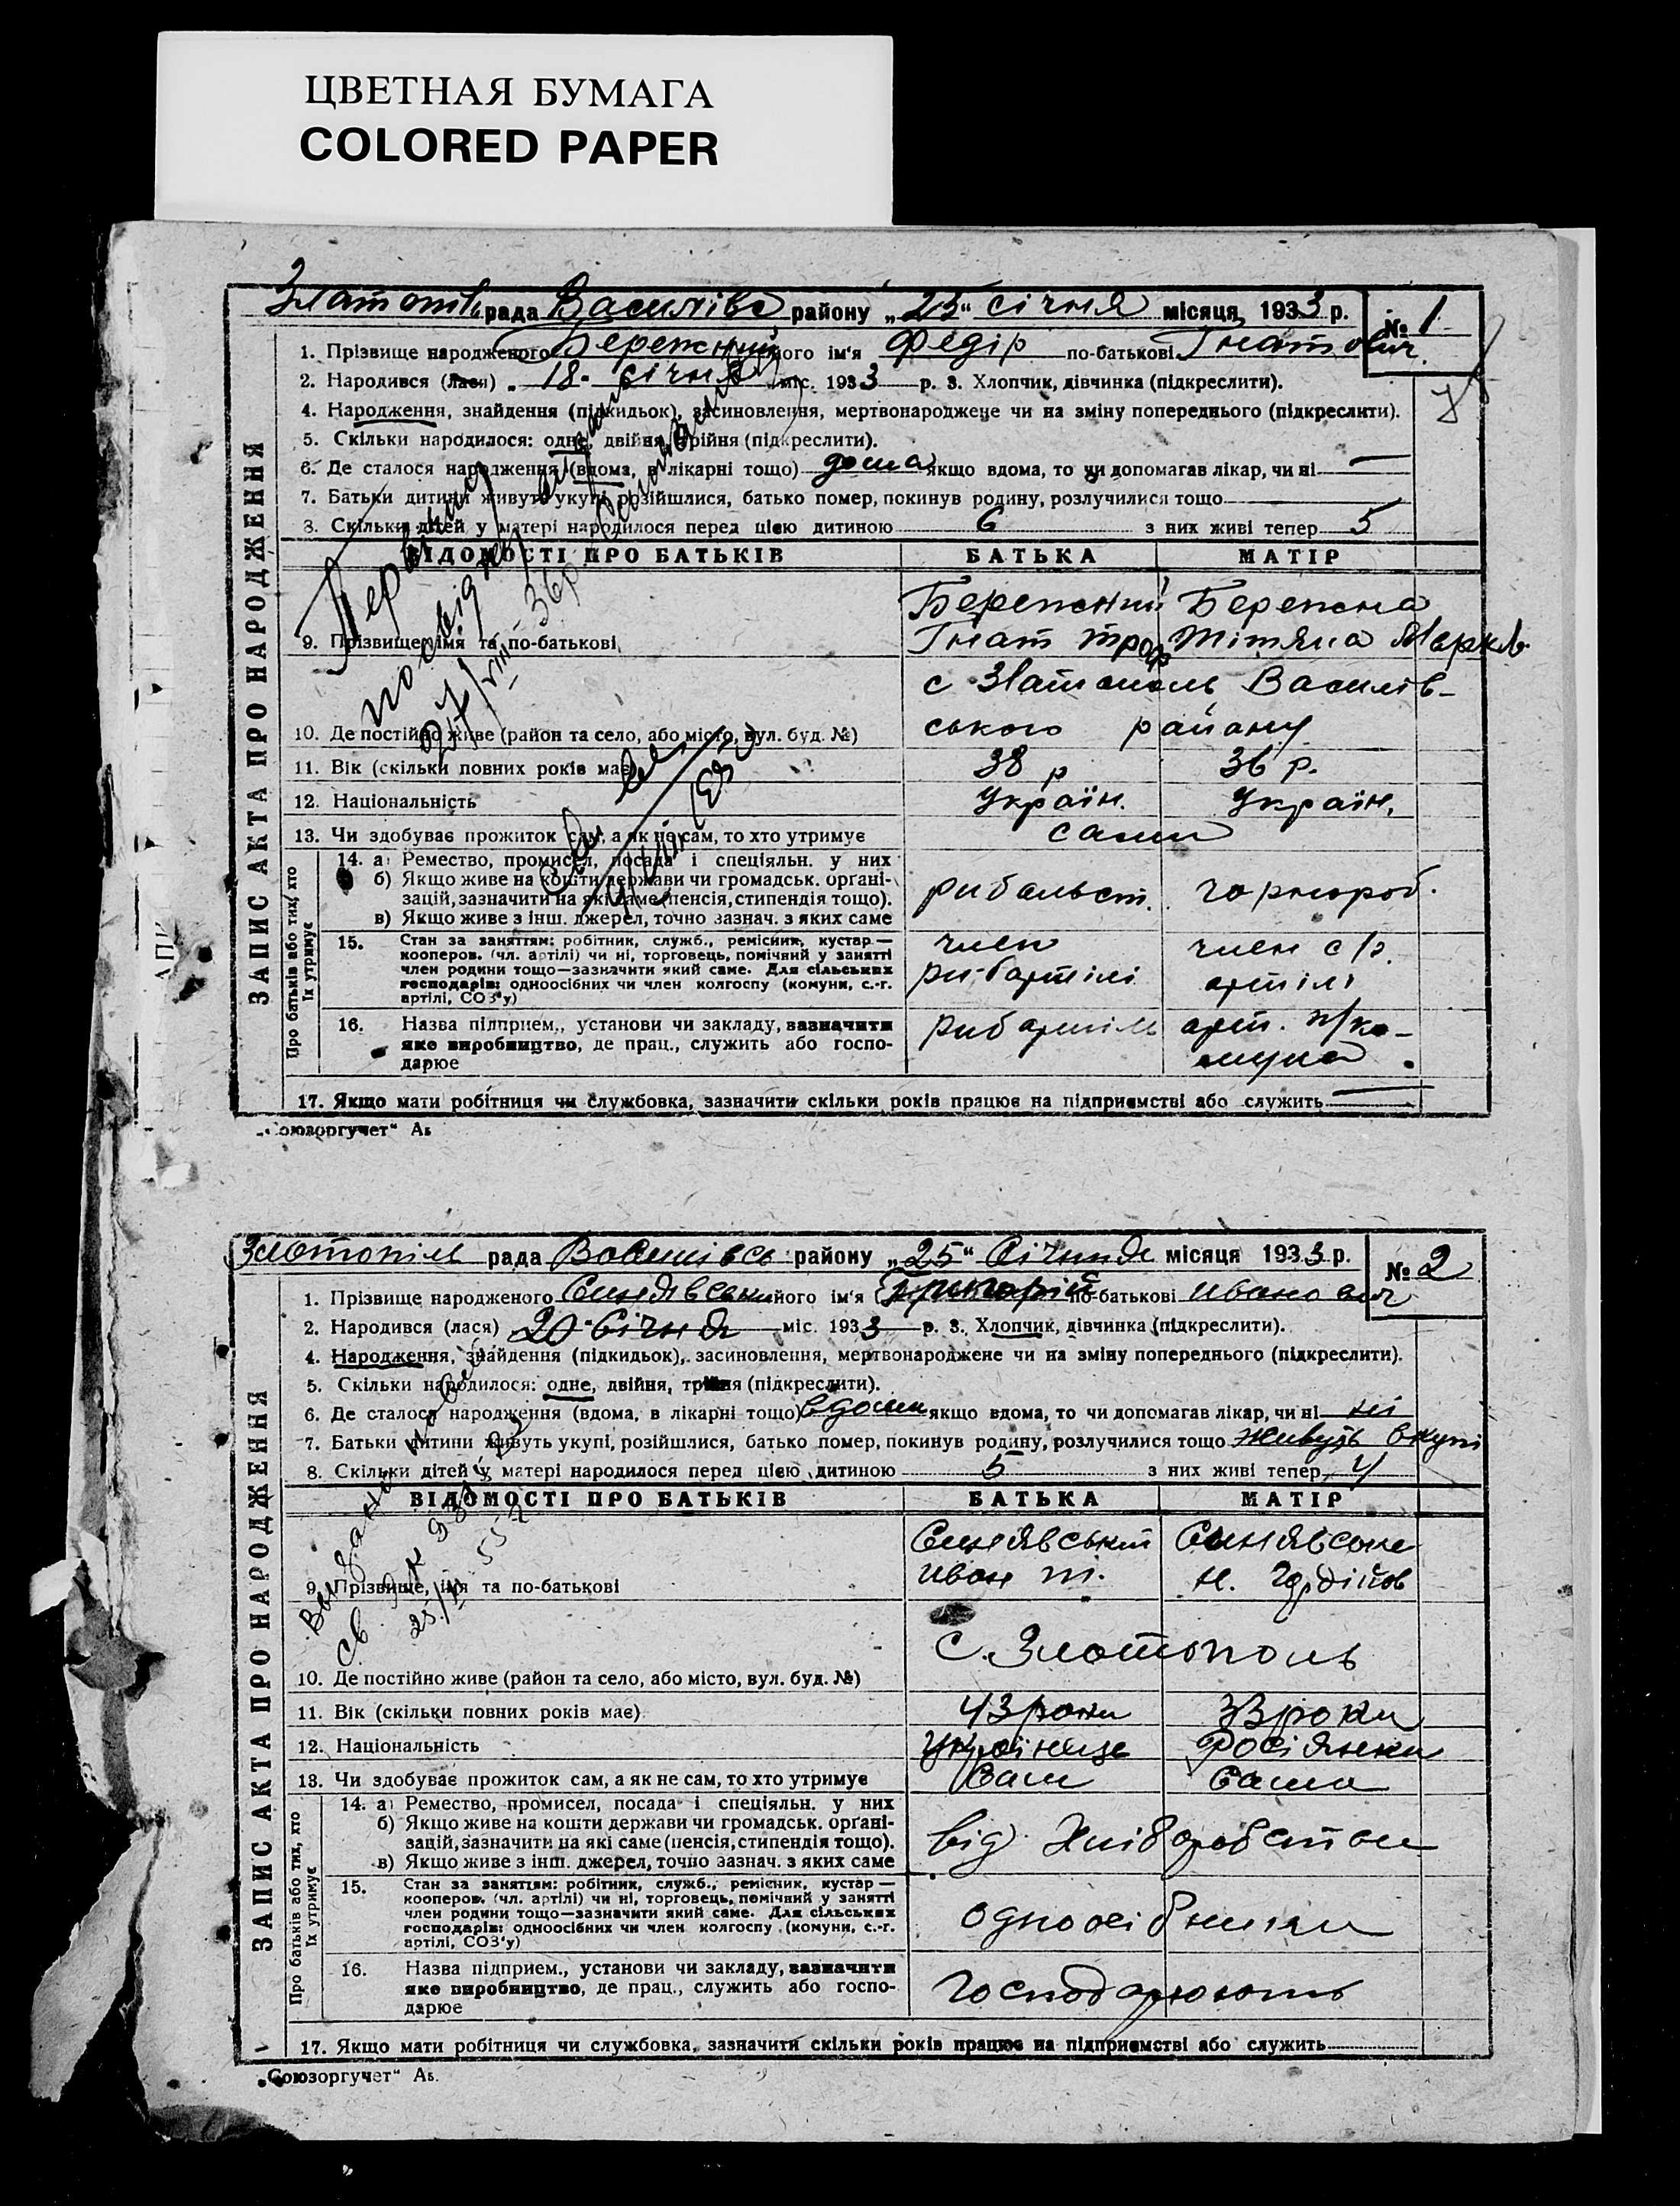 ЦВЕТНАЯ БУМАГА
COLORED PAPER
Златопіль рада Василівс району „25“ січня місяця 1933 р. № 1
1. Прізвище народженого Бережний його ім'я Федір по-батькові Гнатович.
2. Народився (лася) 18 січня міс. 1933 р. 3. Хлопчик, дівчинка (підкреслити).
4. Народження, знайдення (підкидьок), засиновлення, мертвонароджене чи на зміну попереднього (підкреслити).
5. Скільки народилося: одне, двійня, трійня (підкреслити).
6. Де сталося народження (вдома, в лікарні тощо) дома якщо вдома, то чи допомагав лікар, чи ні —
7. Батьки дитини живуть укупі, розійшлися, батько помер, покинув родину, розлучилися тощо
8. Скільки дітей у матері народилося перед цією дитиною 6 з них живі тепер 5
ВІДОМОСТІ ПРО БАТЬКІВ БАТЬКА МАТІР
Бережний Бережна
9. Прізвище, імя та по-батькові Гнат Троф Тітяна Марків
с Златополь Василів-
10. Де постійно живе (район та село, або місто, вул. буд. №) ського району
11. Вік (скільки повних років має) 38 р 36 р.
12. Національність Україн. Україн.
13. Чи здобуває прожиток сам, а як не сам, то хто утримує сами
14. а) Ремество, промисел, посада і спеціяльн. у них
б) Якщо живе на кошти держави чи громадськ. орґані-
зацій, зазначити на які саме (пенсія, стипендія тощо).
в) Якщо живе з інш. джерел, точно зазнач. з яких саме
рибальст. чорнороб.
15. Стан за заняттям: робітник, служб., ремісник, кустар —
кооперов. (чл. артілі) чи ні, торговець, помічний у занятті
член родини тощо—зазначити який саме. Для сільських
господарів: одноосібних чи член колгоспу (комуни, с.-г.
артілі, СОЗ'у)
член член с/г.
рибартілі артілі
16. Назва підприєм., установи чи закладу, зазначити
яке виробництво, де прац., служить або госпо-
дарює
рибартіль арт. п/ко-
муна
17. Якщо мати робітниця чи службовка, зазначити скільки років працює на підприємстві або служить
ЗАПИС АКТА ПРО НАРОДЖЕННЯ
Про батьків або тих, хто
їх утримує
„Союзоргучет“ Аб
Златопіль рада Василівсь району „25“ Січня місяця 1933 р. № 2
1. Прізвище народженого Синявський його ім'я Григорій по-батькові Иванович
2. Народився (лася) 20 Січня міс. 1933 р. 3. Хлопчик, дівчинка (підкреслити).
4. Народження, знайдення (підкидьок), засиновлення, мертвонароджене чи на зміну попереднього (підкреслити).
5. Скільки народилося: одне, двійня, трійня (підкреслити).
6. Де сталося народження (вдома, в лікарні тощо) вдома якщо вдома, то чи допомагав лікар, чи ні ні
7. Батьки дитини живуть укупі, розійшлися, батько помер, покинув родину, розлучилися тощо живуть вкупі
8. Скільки дітей у матері народилося перед цією дитиною 5 з них живі тепер 4
ВІДОМОСТІ ПРО БАТЬКІВ БАТЬКА МАТІР
Синявський Синявська
9. Прізвище, імя та по-батькові Иван т. Н.
С. Златополь
10. Де постійно живе (район та село, або місто, вул. буд. №)
11. Вік (скільки повних років має) 43 роки 33 роки
12. Національність Українець Росіянка
13. Чи здобуває прожиток сам, а як не сам, то хто утримує Сам Сама
14. а) Ремество, промисел, посада і спеціяльн. у них
б) Якщо живе на кошти держави чи громадськ. орґані-
зацій, зазначити на які саме (пенсія, стипендія тощо).
в) Якщо живе з інш. джерел, точно зазнач. з яких саме
від Хліборобства
15. Стан за заняттям: робітник, служб., ремісник, кустар —
кооперов. (чл. артілі) чи ні, торговець, помічний у занятті
член родини тощо—зазначити який саме. Для сільських
господарів: одноосібних чи член колгоспу (комуни, с.-г.
артілі, СОЗ'у)
одноосібники
16. Назва підприєм., установи чи закладу, зазначити
яке виробництво, де прац., служить або госпо-
дарює
господарюють
17. Якщо мати робітниця чи службовка, зазначити скільки років працює на підприємстві або служить
ЗАПИС АКТА ПРО НАРОДЖЕННЯ
Про батьків або тих, хто
їх утримує
„Союзоргучет“ Аб.